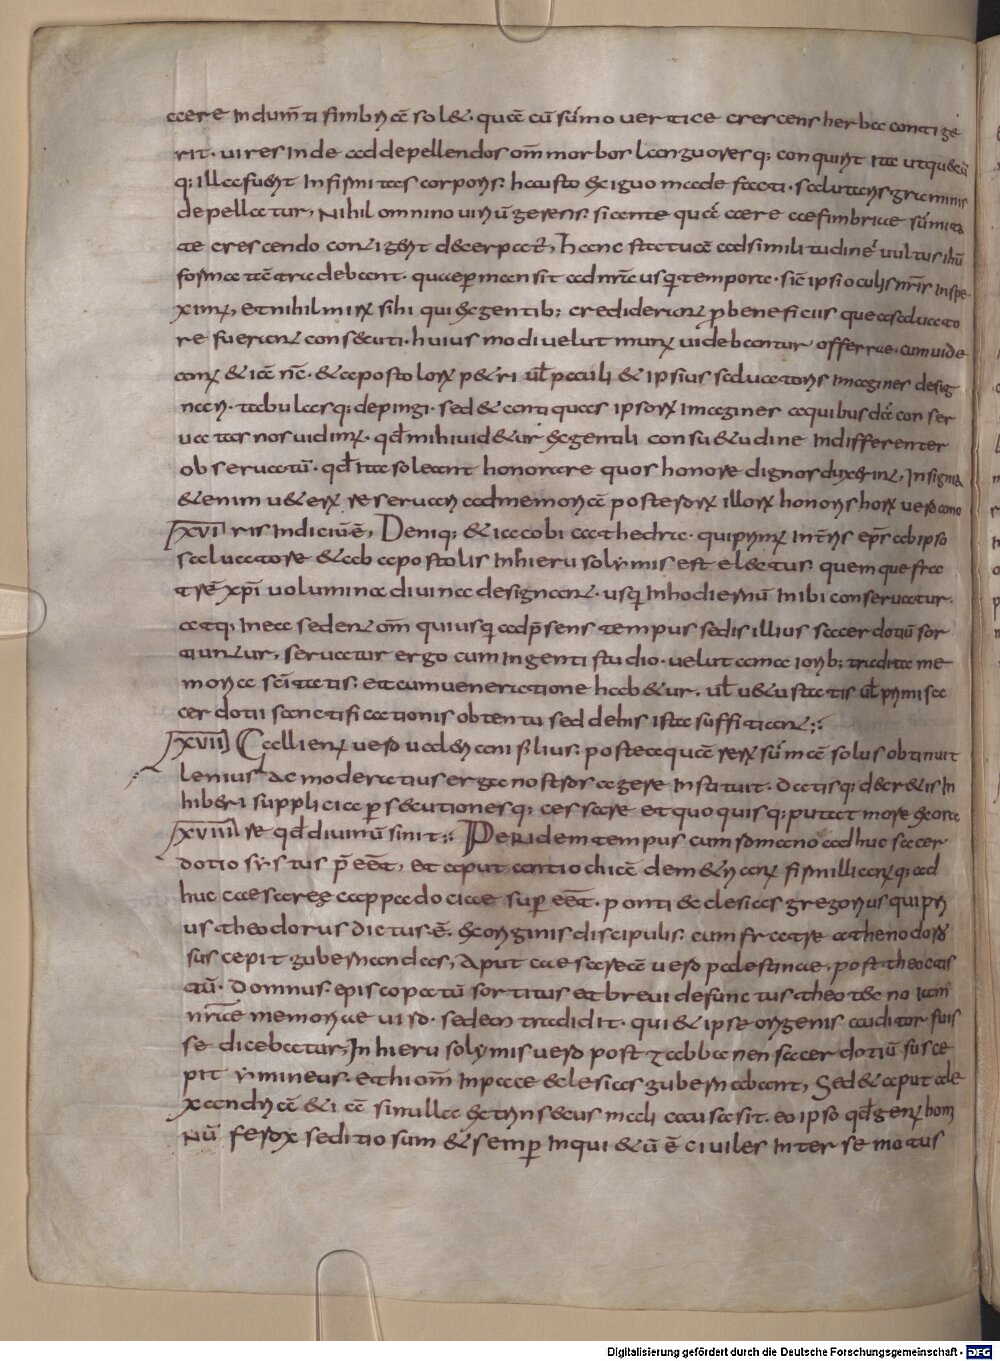 aere indum̄ti fimbriā sol&. quā cū sūmo uertice crescens herba contige
rit. uires inde ad depellendos om̄ morbos languoresq; conquirit ita ut quęcū
q; illa fuerit infirmitas corporis. hausto exiguo madefacta. salutaris graminis
depellatur, Nihil omnino uiriū gerens. si ante quā aere ae fimbriae sūmita
te crescendo contigerit decerpat̄, hanc statuā ad similitudinē uultus ihū
formatā tradebant. quae p̄mansit ad nr̄a usq; tempora. sic ipsi oculis nr̄is inspe
ximus, et nihil mirum si hi qui ex gentib; crediderant p̄ beneficiis quae a saluato
re fuerant consecuti. huiusmodi uelut munus uidebantur offerrae. cum uide
amus & iā nc̄. & apostolorum p&ri ul̄ pauli & ipsius saluatoris imagines desig
nari. tabulasq; depingi. sed & antiquas ipsorum imagines a quibusdā conser
uatas nos uidimus. qd̄ mihi uid&ur ex gentili consu&udine indifferenter
obseruatū. qd̄ ita soleant honorare quos honore dignos duxerint, Insignia
&enim u&erum reseruari ad memoriā posterorum illorum honoris horum uero amo
XVI ris indiciū ē, Deniq; & iacobi cathedra. qui primus in t̄ris ep̄s ab ipso
saluatore & ab apostolis in hierusolymis est electus. quemque fra
trē xp̄i uolumina diuina designant. usq; in hodiernū inibi conseruatur.
atq; in ea sedent om̄ qui usq; ad p̄sens tempus sedis illius sacerdotiū sor
tiuntur, seruatur ergo cum ingenti studio. uelut a maiorib; tradita me
moria sc̄itatis. et cum ueneratione hab&ur. ul̄ u&ustatis ul̄ primi sa
cerdotii sanctificationis obtentu sed de his ista sufficiant;
XVII Gallienus uero ualeriani filius. postea quā rerum sūmā solus obtinuit
lenius ac moderatius erga nostros agere instituit. datisq; decr&is in
hiberi supplicia persecutionesq; cessare et quo quisq; putat more exora
XVIII re qd̄ diuinū sinit; Per idem tempus cum romano adhuc sacer
dotio systus p̄eēt, et aput antiochiā dem&rianus firmillianusq; ad
huc caesareę cappadociae sup̄eēt. ponti ecclesias gregorius qui pri
us theodorus dictus ē. ex originis discipulis. cum fratre athenodoro
suscepit gubernandas, Aput caesaream uero palestinae. post theotis
tū. domnus. episcopatū sortitus et breui defunctus theotecno iam
nr̄ae memoriae uiro. sedem tradidit. qui & ipse origenis auditor fuis
se dicebatur, In hierusolymis uero post zabbanen sacerdotiū susce
pit ymineus. et hi om̄ in pace ecclesias gubernabant, Sed & aput ale
xandriā & iā simillę ex trinsecus mali accesit. eo ipso qd̄ genus homi
nū ferox seditiosum & semp̄ inqui&ū ē ciuiles inter se motus
Digitalisierung gefördert durch die Deutsche Forschungsgemeinschaft - DFG